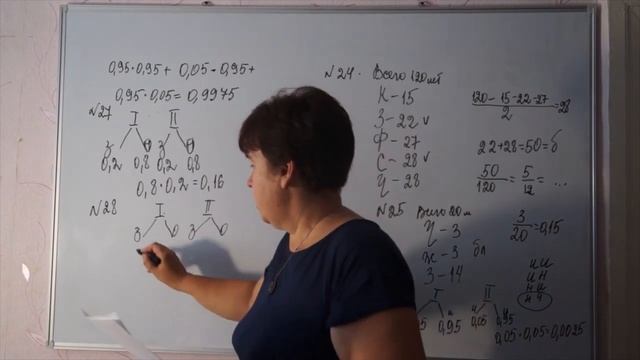 0,95·0,95+ 0,05·0,95+
0,95·0,05=0,9975
N27
I II
З О З О
0,2 0,8 0,2 0,8
0,8·0,2=0,16
N28
I II
З О З О
N24. Всего 120 шт
К-15
З-22 v
Ф-27
С-28 v
Ч-28
120-15-22-27
2
=28
22+28=50=б
50
120
=
5
12
=...
N25 Всего 20 м
Ч-3
Ж-3 бл
З-14
3
20
=0,15
ии
ин
ни
нч
I II
0,95 0,05 0,95
0,05·0,05=0,0025